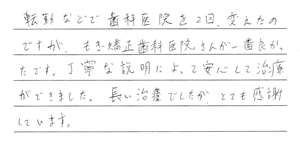 転勤などで歯科医院を2回、変えたの
ですが、もぎ矯正歯科医院さんが一番良かっ
たです。丁寧な説明によって安心して治療
ができました。長い治療でしたが、とても感謝
しています。